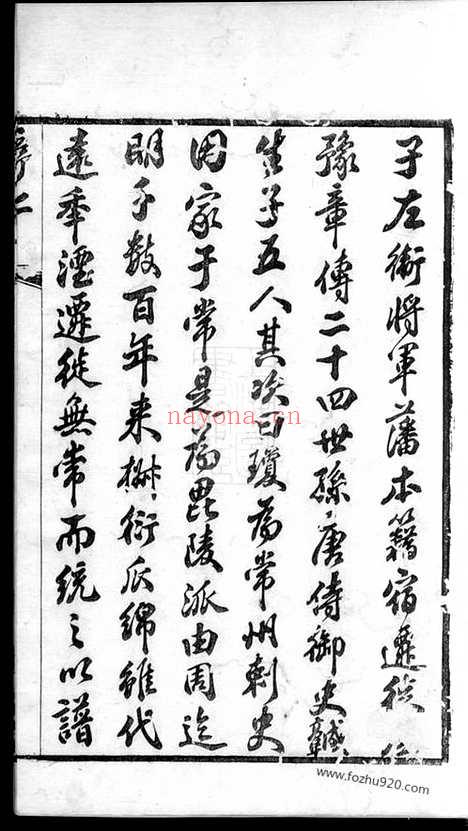 子左衞將軍藩本籍宿遷徙
豫章傳二十四世孫唐侍御史
生子五人其次曰瓊為常州刺史
因家于常是為毘陵派由周迄
明千數百年来椒衍瓜綿雖代
遠年湮遷徙無常而統之以譜
序 二
nayona.cn
www.fozhu920.com